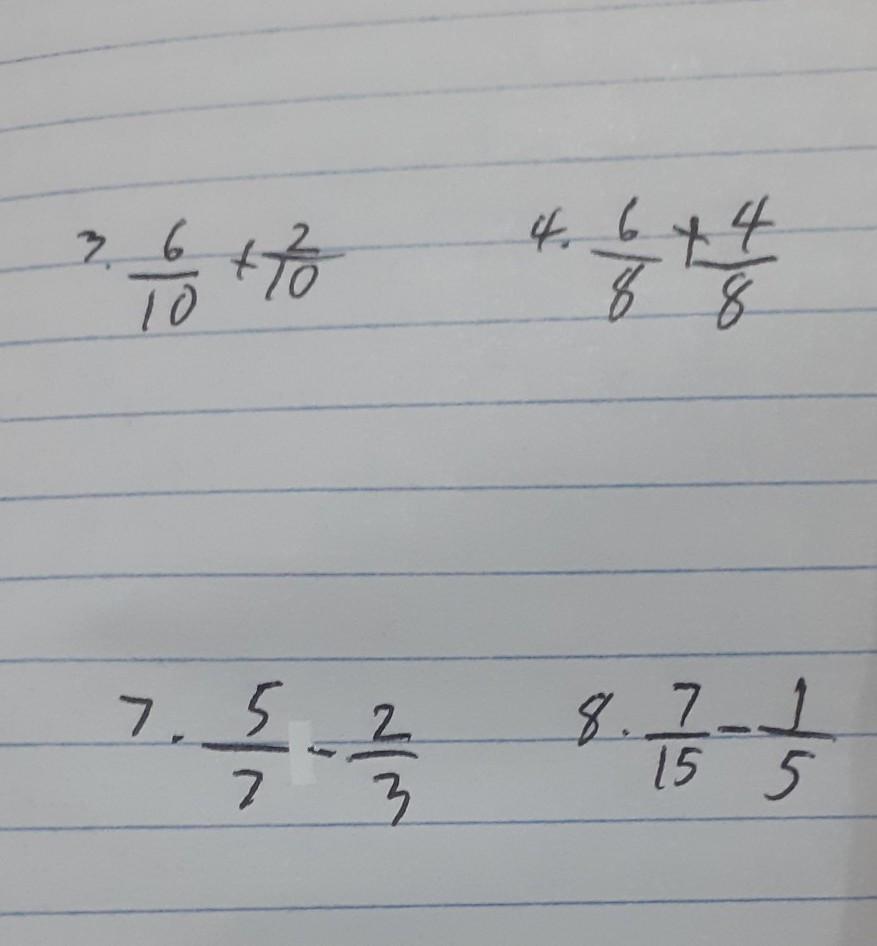 3. 6/10 + 2/10
4. 6/8 + 4/8
7. 5/7 - 2/3
8. 7/15 - 1/5